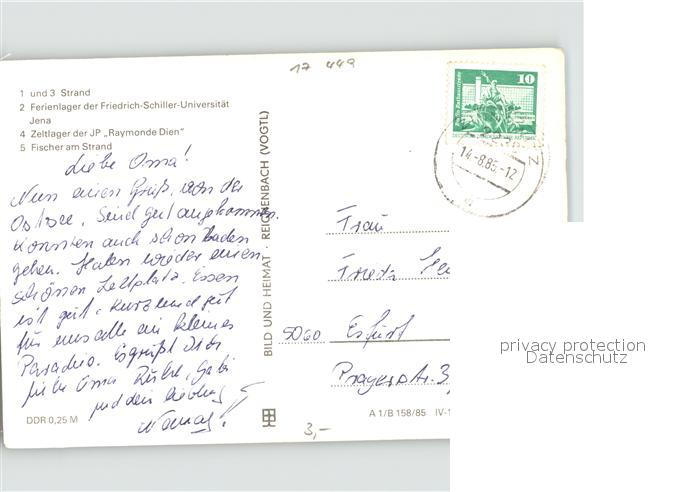 17 449
1 und 3 Strand
2 Ferienlager der Friedrich-Schiller-Universität
Jena
4 Zeltlager der JP „Raymonde Dien"
5 Fischer am Strand
Liebe Oma!
Nun einen Gruß von der
Ostsee. Sind gut angekommen
konnten auch schon baden
gehen. Haben wieder einen
schönen Zeltplatz. Essen
ist gut. Kurz und gut
für uns alle ein kleines
Paradies. Es grüßt Dich
liebe Oma Gabi
und dein
DDR 0,25 M
BILD UND HEIMAT · REICHENBACH (VOGTL)
A 1/B 158/85 IV-1
3,-
10
14.-8.85.-12
Frau
Frieda
5060 Erfurt
Pragerstr. 3
privacy protection
Datenschutz